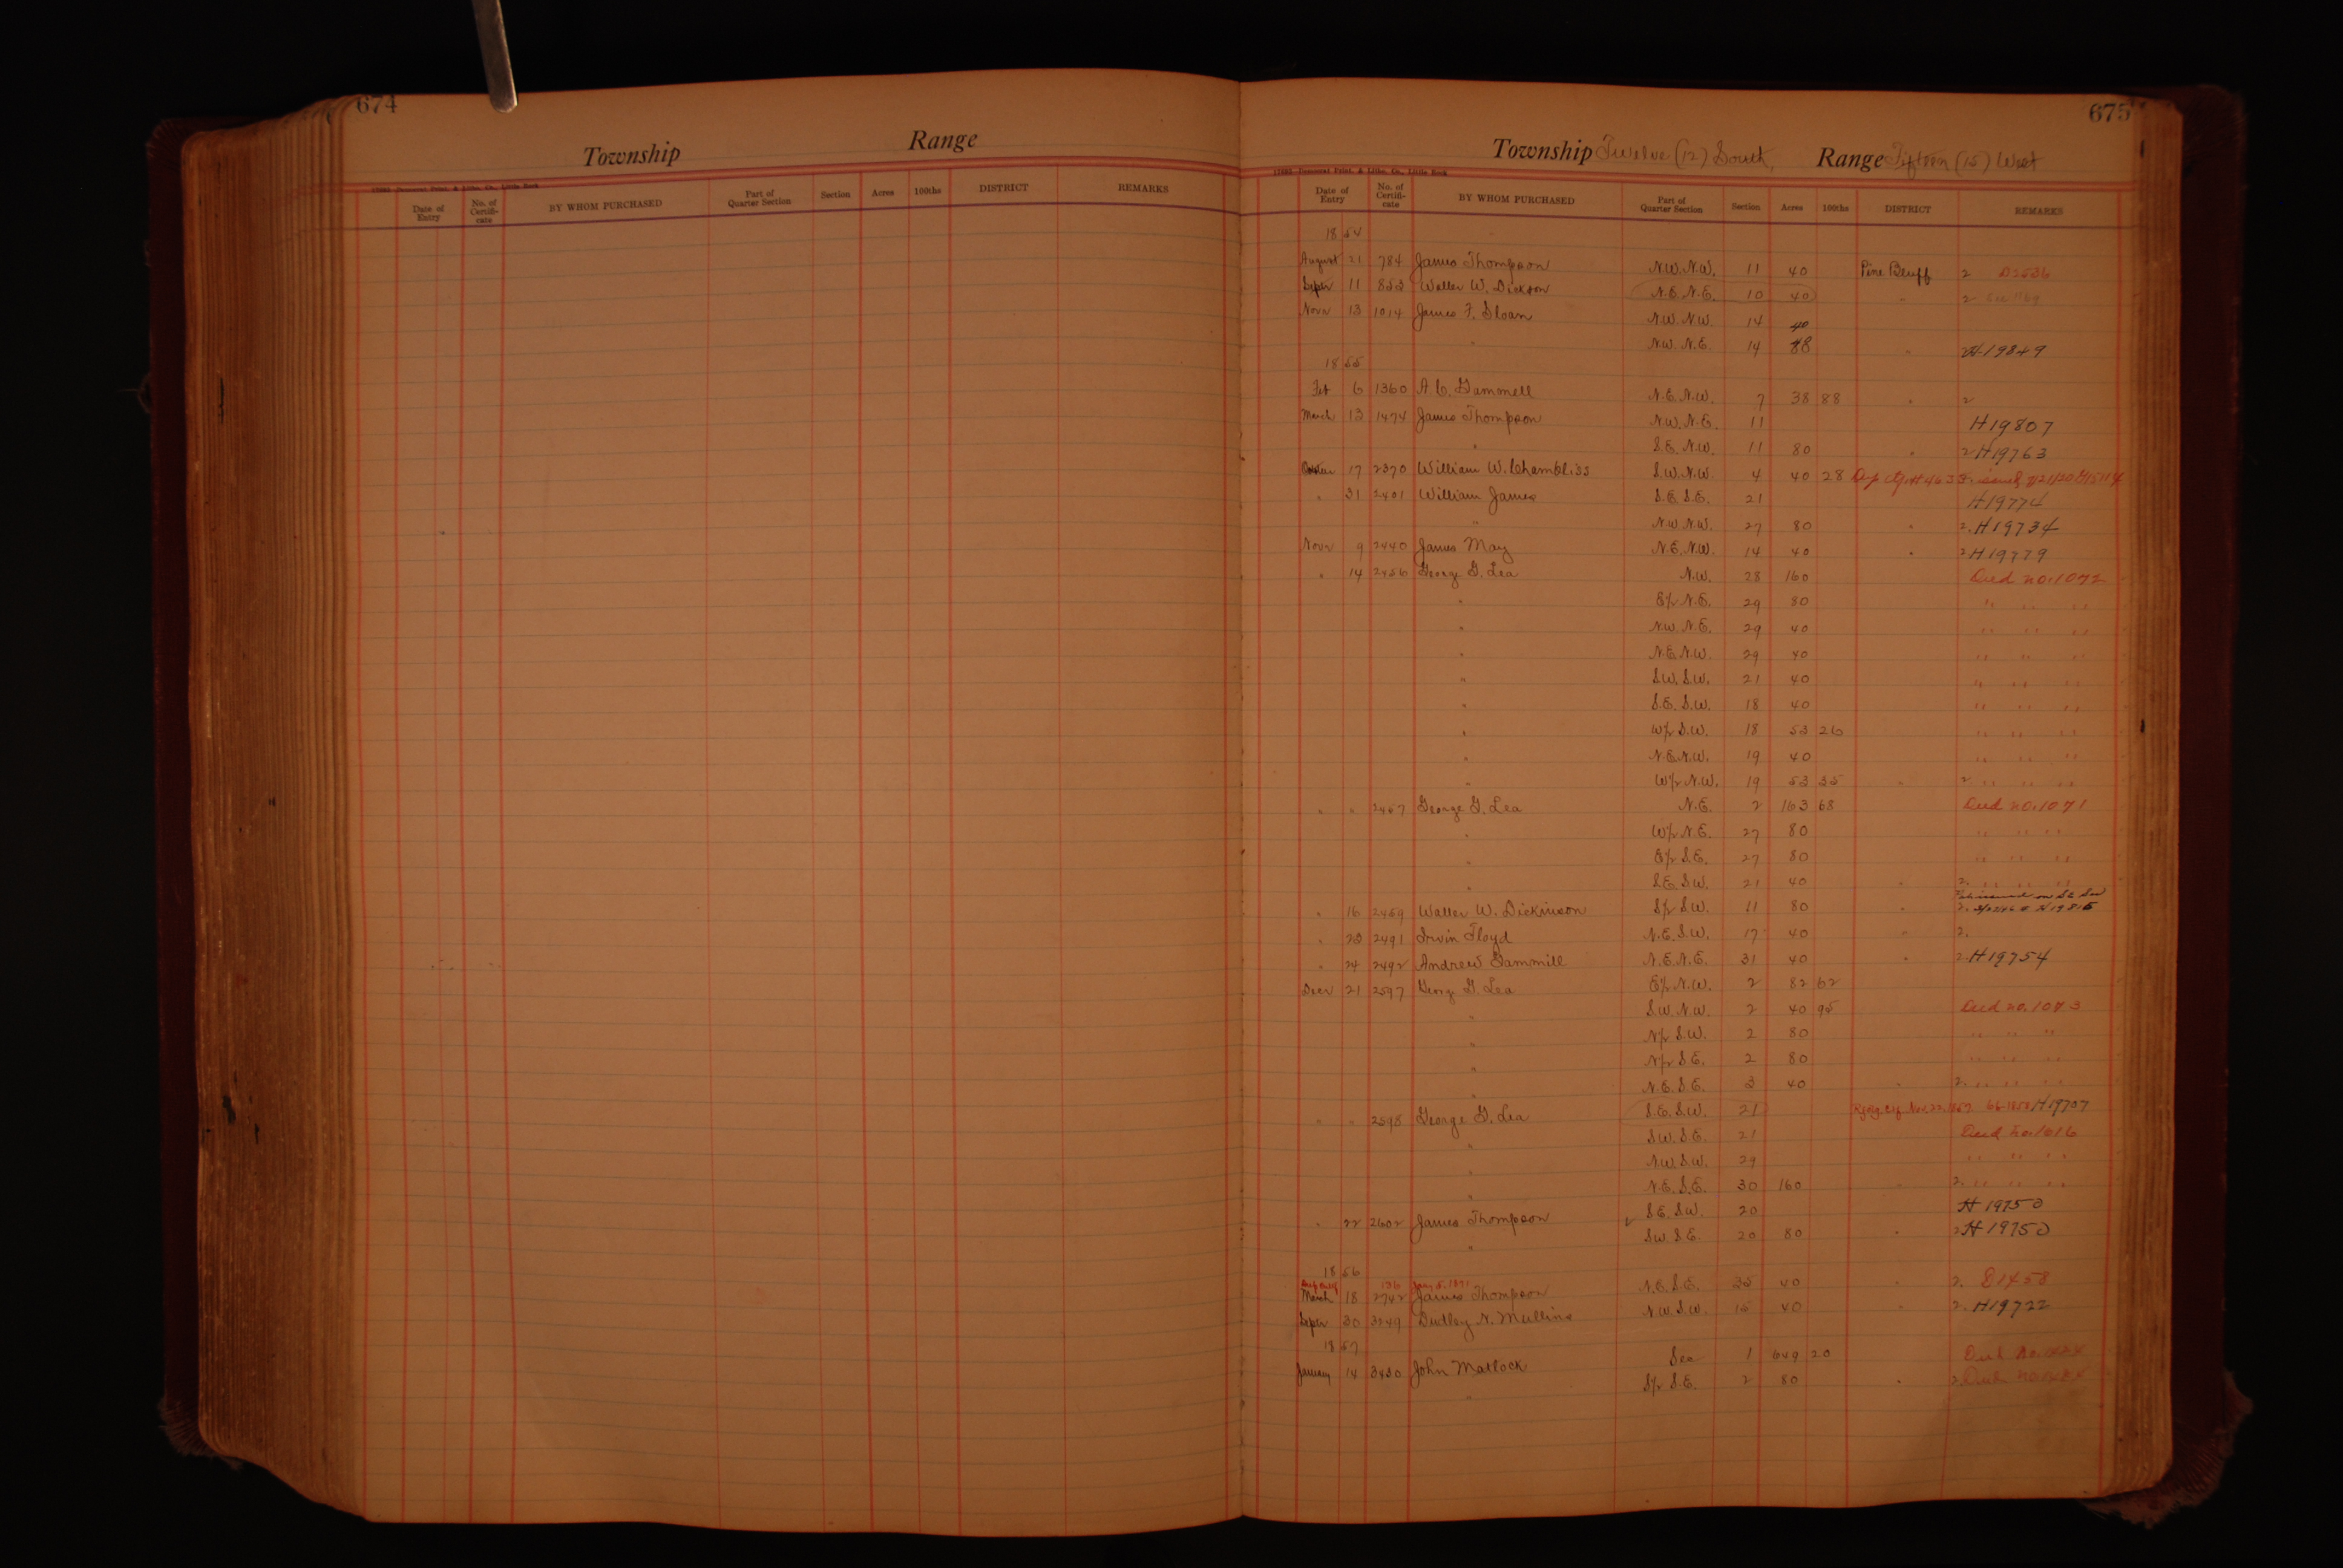 674
Township Range
Date of Entry No. of Certifi-cate BY WHOM PURCHASED Part of Quarter Section Section Acres 100ths DISTRICT REMARKS
675
Township Twelve (12) South, Range Fifteen (15) West
Date of Entry No. of Certifi-cate BY WHOM PURCHASED Part of Quarter Section Section Acres 100ths DISTRICT REMARKS
1854
August 21 784 James Thompson N.W. N.W. 11 40 Pine Bluff 2
Sepr 11 853 Walter W. Dickson N.E. N.E. 10 40 " 2
Novr 13 1014 James F. Sloan N.W. N.W. 14 40
" N.W. N.E. 14 " H19849
1855
Feb 6 1360 A. C. Gammell N.E. N.W. 7 38 88 " 2
March 13 1474 James Thompson N.W. N.E. 11 H19807
" S.E. N.W. 11 80 " 2 H19763
17 2370 William W. Chambliss S.W. N.W. 4 40 28
" 31 2401 William James S.E. S.E. 21 H19774
" N.W. N.W. 27 80 " 2. H19734
Novr 9 2440 James May N.E. N.W. 14 40 " 2 H19779
" 14 2456 George G. Lea N.W. 28 160 Deed no. 1072
" E/2 N.E. 29 80 " " "
" N.W. N.E. 29 40 " " "
" N.E. N.W. 29 40 " " "
" S.W. S.W. 21 40 " " "
" S.E. S.W. 18 40 " " "
" W/2 S.W. 18 53 26 " " "
" N.E. N.W. 19 40 " " "
" W/2 N.W. 19 53 35 " 2 " " "
" " 2457 George G. Lea N.E. 2 163 68 Deed no. 1071
" W/2 N.E. 27 80 " " "
" E/2 S.E. 27 80 " " "
" S.E. S.W. 21 40 " 2. " " "
" 16 2459 Walter W. Dickinson S/2 S.W. 11 80 "
" 23 2491 Irvin Floyd N.E. S.W. 17 40 " 2.
" 24 2492 Andrew Gammill N.E. N.E. 31 40 " 2 H19754
Decr 21 2597 George G. Lea E/2 N.W. 2 82 62
" S.W. N.W. 2 40 95 Deed no. 1073
" N/2 S.W. 2 80 " " "
" N/2 S.E. 2 80 " " "
" N.E. S.E. 3 40 " 2. " " "
" " 2598 George G. Lea S.E. S.W. 21 H19707
" S.W. S.E. 21 Deed no. 1016
" N.W. S.W. 29 " " "
" N.E. S.E. 30 160 " 2. " " "
" 22 2602 James Thompson S.E. S.W. 20 H19750
" S.W. S.E. 20 80 " 2 H19750
1856
136 Jany 5. 1891
March 18 2742 James Thompson N.E. S.E. 35 40 " 2. D1458
Sepr 30 3249 Dudley N. Mullins N.W. S.W. 15 40 " 2. H19722
1857
January 14 3430 John Matlock Sec 1 649 20
" S/2 S.E. 2 80 " 2